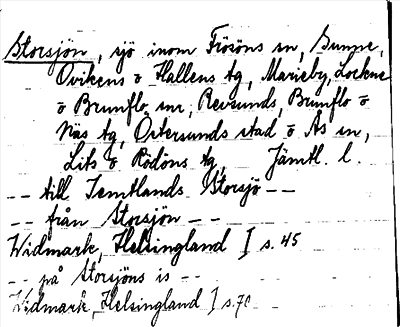 Storsjön, sjö inom Frösöns sn, Sunne,
Ovikens o Hallens tg, Marieby, Lockne
o Brunflo snr, Revsunds, Brunflo o
Näs tg, Östersunds stad o Ås sn,
Lits o Rödöns tg, Jämtl. l.
-- till Jemtlands Storsjö --
-- från Storsjön --
Widmark, Helsingland I s. 45
-- på Storsjöns is --
Widmark, Helsingland I s. 70